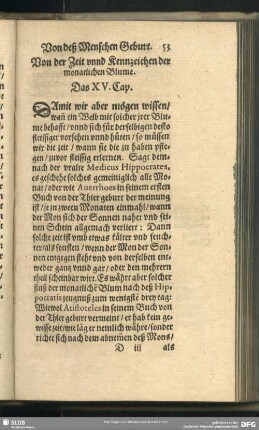 Von deß Menschen Geburt. 53
Von der Zeit vnnd Kennzeichen der
monatlichen Blume.
Das XV. Cap.
DAmit wir aber mögen wissen/
wañ ein Weib mit solcher jrer Blu-
me behafft/ vnnd sich für derselbigen desto
fleissiger vorsehen vnnd hüten/ so müssen
wir die zeit/ wann sie die zu haben pfle-
gen/ zuvor fleissig erlernen. Sagt dem-
nach der vralte Medicus Hippocrates,
es geschehe solches gemeiniglich alle Mo-
nat/ oder wie Auerrhoes in seinem ersten
Buch von der Thier geburt der meinung
ist/ je zu zween Monaten einmahl/ wann
der Mon sich der Sonnen naher vnd sei-
nen Schein allgemach verliert: Dann
solche zeit ist vmb etwas kälter vnd feuch-
ter/ als sonsten/ wenn der Mon der Son-
nen entgegen steht vnd von derselben ent-
weder gang vnnd gar/ oder den mehrern
theil scheinbar wirt. Es währt aber solcher
fluß der monatlichẽ Blum nach deß Hip-
pocratis zeugnuß zum wenigstẽ drey tag:
Wiewol Aristoteles in seinem Buch von
der Thier geburt vermeint/ er hab kein ge-
wisse zeit/ wie lãg er nemlich währe/ sonder
richte sich nach dem abnemen deß Mons/
D iij als
SLUB
DFG